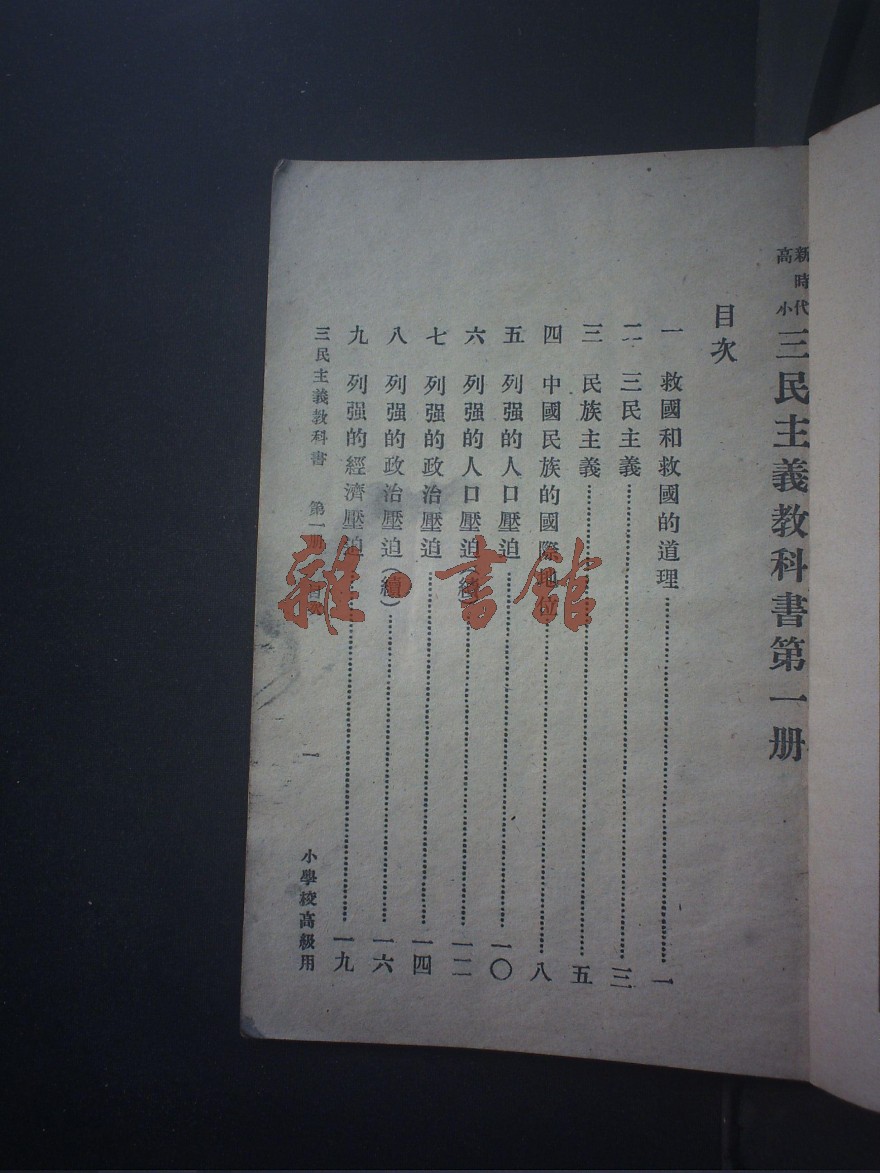 新時代
高小
三民主義教科書第一册
目次
一 救國和救國的道理……一
二 三民主義……三
三 民族主義……五
四 中國民族的國際地位……八
五 列强的人口壓迫……一〇
六 列强的人口壓迫(續)……一二
七 列强的政治壓迫……一四
八 列强的政治壓迫(續)……一六
九 列强的經濟壓迫……一九
三民主義教科書 第一册 目次 一 小學校高級用
雜·書館